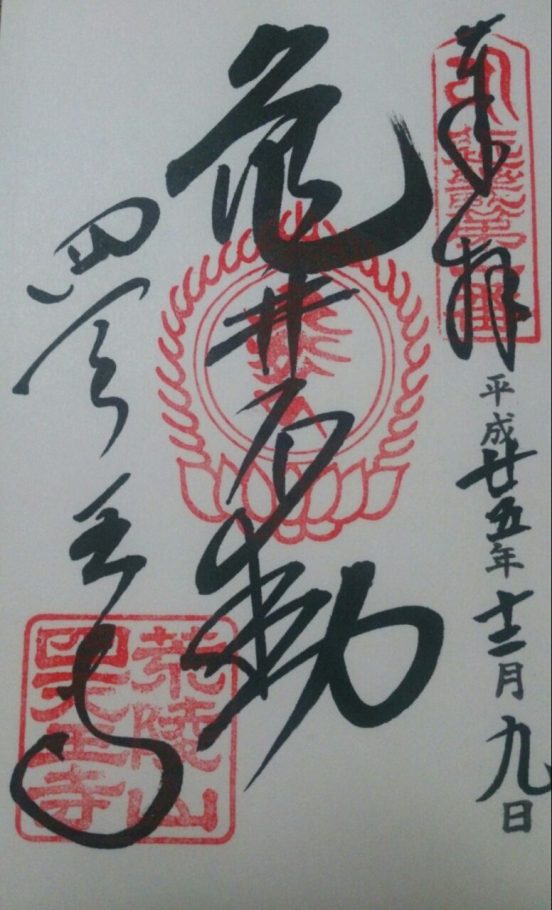 奉拝
平成廿五年十二月九日
亀井不動
四天王寺
荒陵山
四天王寺